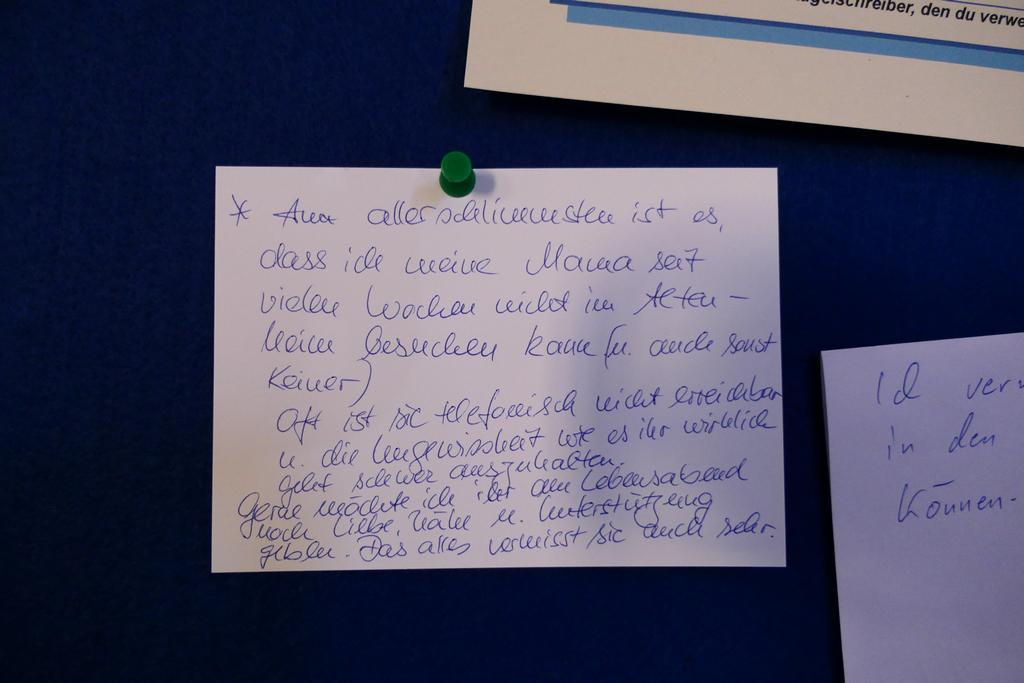 gelschreiber, den du verwe
* Am allerschlimmsten ist es,
dass ich meine Mama seit
vielen Wochen nicht im Alten-
heim besuchen kann (u. auch sonst
Keiner)
Oft ist sie telefonisch nicht erreichbar
u. die Ungewissheit wie es ihr wirklich
geht schwer auszuhalten.
Gerne möchte ich ihr am Lebensabend
noch Liebe, Nähe u. Unterstützung
geben. Das alles vermisst sie auch sehr.
Ich verm
in den
können.